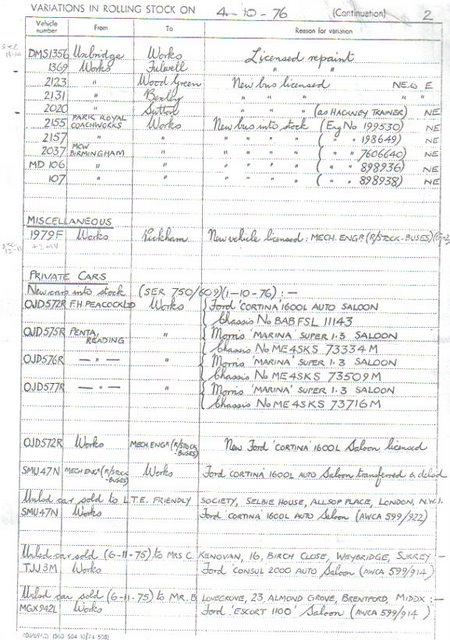 VARIATIONS IN ROLLING STOCK ON 4-10-76 (Continuation) 2
Vehicle number From To Reason for variation
DMS1356 Uxbridge Works Licensed repaint
1369 Works Fulwell " "
2123 " Wood Green New bus licensed NE.O E
2131 " Bexley " " " " "
2020 " Sutton " " " (as HACKNEY TRAINER) NE
2155 PARK ROYAL COACHWORKS Works New bus into stock (Eng No 199530) NE
2157 " " " " " " ( " " 198649) NE
2037 MCW BIRMINGHAM " " " " " ( " " 7606640) NE
MD 106 " " " " " " ( " " 898936) NE
107 " " " " " " ( " " 898938) NE
MISCELLANEOUS
1979F Works Peckham New vehicle licensed: MECH. ENGR (R/STOCK-BUSES)
PRIVATE CARS
New cars into stock (SER 750/609)(1-10-76) :—
OJD572R F.H. PEACOCK LTD Works Ford 'CORTINA' 1600L AUTO SALOON
Chassis No BABFSL 11143
OJD575R PENTA, READING " Morris 'MARINA' SUPER 1·3 SALOON
Chassis No ME4SKS 73334M
OJD576R — " — " Morris 'MARINA' SUPER 1·3 SALOON
Chassis No ME4SKS 73509M
OJD577R — " — " Morris 'MARINA' SUPER 1·3 SALOON
Chassis No ME4SKS 73716M
OJD572R Works MECH ENGR (R/STOCK-BUSES) New Ford 'CORTINA' 1600L Saloon licensed
SMU47N MECH ENGR (R/STOCK-BUSES) Works Ford CORTINA 1600L AUTO Saloon transferred & delicd
Unlcd car sold to L.T.E. FRIENDLY SOCIETY, SELBIE HOUSE, ALLSOP PLACE, LONDON, N.W.1.
SMU47N Works Ford 'CORTINA' 1600L AUTO Saloon (AWCA 599/922)
Unlcd car sold (6-11-75) to MRS C. KENOVAN, 16, BIRCH CLOSE, WEYBRIDGE, SURREY :—
TJJ3M Works Ford 'CONSUL 2000 AUTO Saloon (AWCA 599/914)
Unlcd car sold (6-11-75) to MR. B LOVEGROVE, 23, ALMOND GROVE, BRENTFORD, MIDDX :—
MGX942L Works Ford 'ESCORT 1100' Saloon (AWCA 599/914)